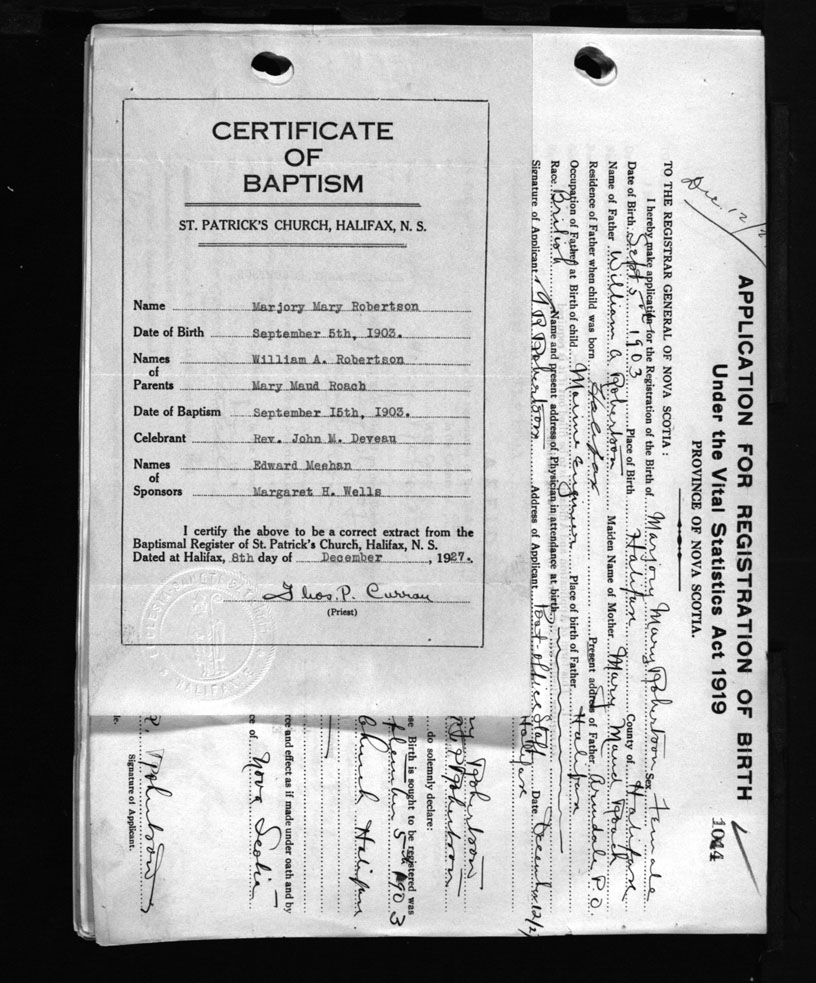 CERTIFICATE
OF
BAPTISM
ST. PATRICK'S CHURCH, HALIFAX, N. S.
Name Marjory Mary Robertson
Date of Birth September 5th, 1903.
Names of Parents William A. Robertson
Mary Maud Roach
Date of Baptism September 15th, 1903.
Celebrant Rev. John M. Deveau
Names of Sponsors Edward Meehan
Margaret H. Wells
I certify the above to be a correct extract from the
Baptismal Register of St. Patrick's Church, Halifax, N. S.
Dated at Halifax, 8th day of December, 1927.
Thos. P. Curran
(Priest)
1044
APPLICATION FOR REGISTRATION OF BIRTH
Under the Vital Statistics Act 1919
PROVINCE OF NOVA SCOTIA.
Dec. 12/2
TO THE REGISTRAR GENERAL OF NOVA SCOTIA:
I hereby make application for the Registration of the Birth of Marjory Mary Robertson Sex Female
Date of Birth Sept 5th 1903 Place of Birth Halifax County of Halifax
Name of Father William A Robertson Maiden Name of Mother Mary Maud Roach
Residence of Father when child was born Halifax Present address of Father Armdale P.O.
Occupation of Father at Birth of child Marine Engineer Place of birth of Father Halifax
Race British Name and present address of Physician in attendance at birth
Signature of Applicant Robertson Address of Applicant Post office Staff Date December 12/27
Halifax
ry Robertson
Robertson
do solemnly declare:
se Birth is sought to be registered was
tember 5th 1903
Church Halifax
rce and effect as if made under oath and by
ce of Nova Scotia
P. Robertson
Signature of Applicant.